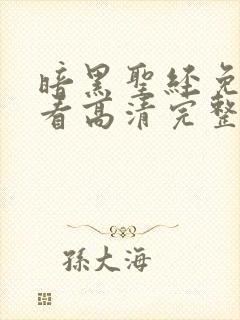 暗黑聖經免
看高清完整
孫大海